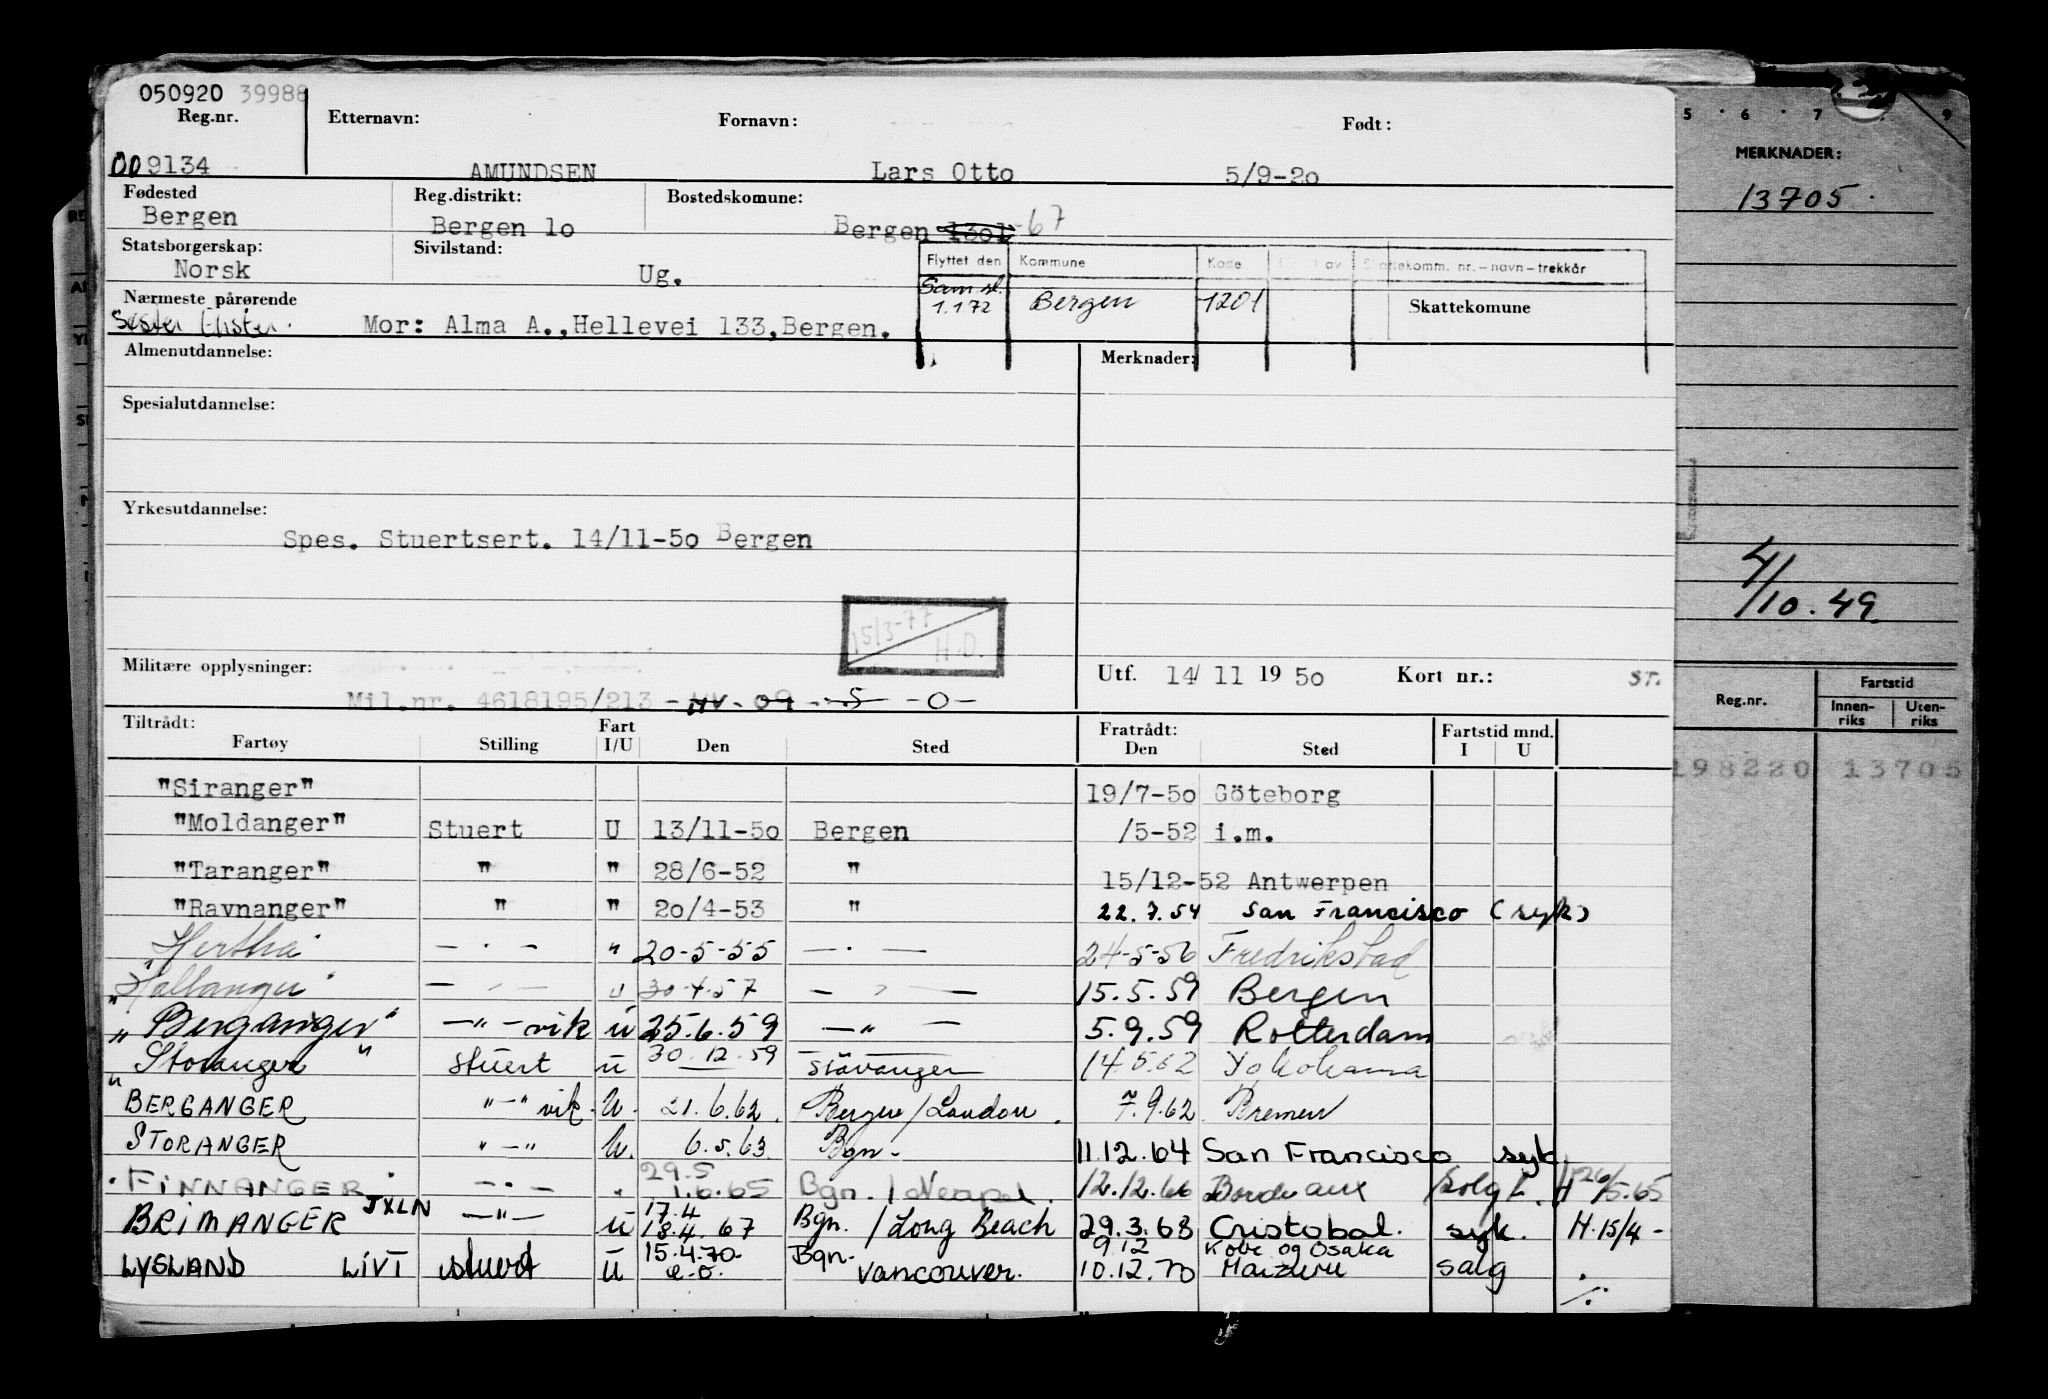 050920 39988
Reg.nr. Etternavn: Fornavn: Født:
009134 AMUNDSEN Lars Otto 5/9-20
Fødested Reg.distrikt: Bostedskomune:
Bergen Bergen 10 Bergen 1301 -67
Statsborgerskap: Sivilstand:
Norsk Ug.
Flyttet den Kommune Kode Skattekomm. nr.-navn-trekkår
1.1.72 Bergen 1201 Skattekomune
Nærmeste pårørende
Søster
Mor: Alma A.,Hellevei 133,Bergen.
Almenutdannelse: Merknader:
Spesialutdannelse:
Yrkesutdannelse:
Spes. Stuertsert. 14/11-50 Bergen
15/3-77 H.D.
Militære opplysninger: Utf. 14/ 11 19 50 Kort nr.: ST.
Mil.nr. 4618195/213 - HV - 09 - 5 - 0 -
Tiltrådt: Fratrådt:
Fartøy Stilling Fart I/U Den Sted Den Sted Fartstid mnd. I U
"Siranger" 19/7-50 Göteborg
"Moldanger" Stuert U 13/11-50 Bergen /5-52 i.m.
"Taranger" " " 28/6-52 " 15/12-52 Antwerpen
"Ravnanger" " " 20/4-53 " 22.7.54 San Francisco (syk)
"Hertha" — . — " 20-5-55 — . — 24-5-56 Fredrikstad
"Hallanger" — " — " 30.4.57 — " — 15.5.59 Bergen
"Berganger" —"— vik u 25.6.59 —"— 5.9.59 Rotterdam
"Storanger" Stuert u 30.12.59 Stavanger 14.5.62 Yokohama
BERGANGER "—" vik. U. 21.6.62 Bergen/London. 7.9.62 Bremen
STORANGER "—" U. 6.5.63. Bgn. 11.12.64 San Francisco syk.
FINNANGER —"— " 29.5 1.6.65 Bgn. / Neapel. 12.12.66 Bordeaux Solgt. H 26/5.65
BRIMANGER JXLN —"— u 17.4 18.4.67 Bgn. / Long Beach 29.3.68 Cristobal. syk. H.15/4-
LYSLAND LIVT stuert u 15.4.70 e.o. Bgn. Vancouver. 9.12 10.12.70 Kobe og Osaka Maizuru salg ./.
5 · 6 · 7 · 9
MERKNADER:
13705.
4/10.49
Reg.nr. Fartstid
Innenriks Utenriks
198220 13705